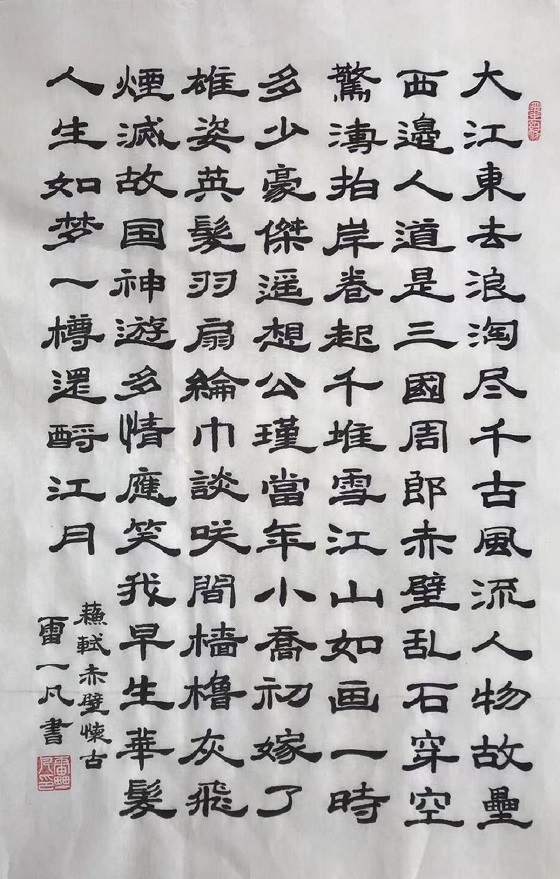 大江東去浪淘尽千古風流人物故壘
西邊人道是三國周郎赤壁乱石穿空
驚濤拍岸卷起千堆雪江山如画一時
多少豪傑遥想公瑾當年小喬初嫁了
雄姿英髮羽扇綸巾談咲間檣櫓灰飛
煙滅故国神遊多情應笑我早生華髮
人生如梦一樽還酹江月
蘓軾赤壁懷古
雷一凡書